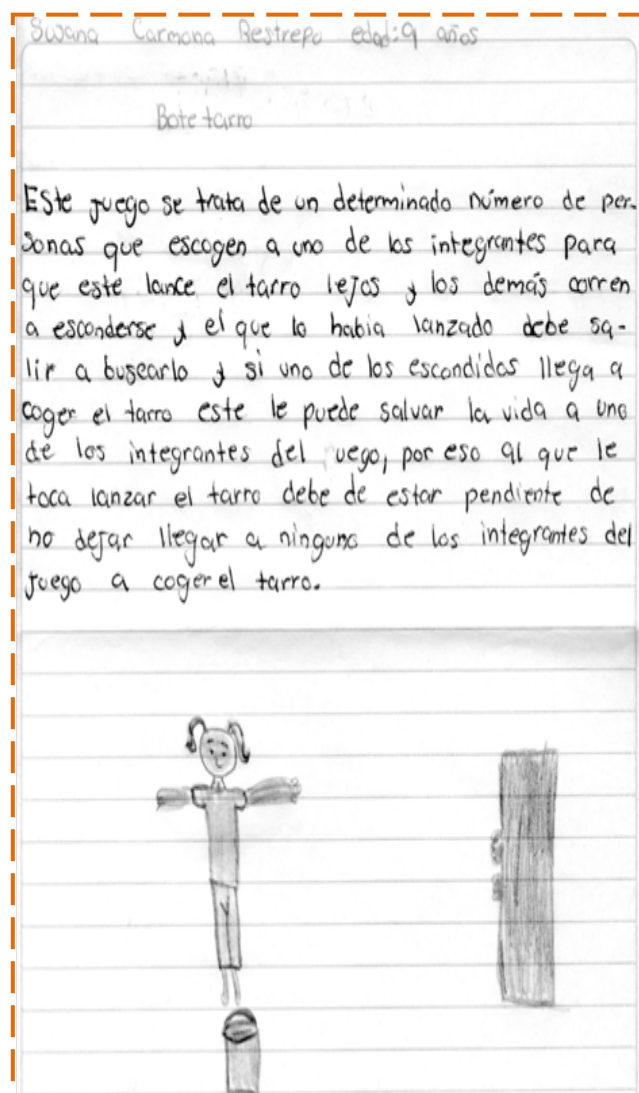 Swana Carmona Restrepo edad: 9 años
Bote tarro
Este juego se trata de un determinado número de per-
sonas que escogen a uno de los integrantes para
que este lance el tarro lejos y los demás corren
a esconderse y el que lo habia lanzado debe sa-
lir a busearlo y si uno de los escondidos llega a
coger el tarro este le puede salvar la vida a uno
de los integrantes del uego, por eso al que le
toca lanzar el tarro debe de estar pendiente de
no dejar llegar a ninguno de los integrantes del
juego a coger el tarro.